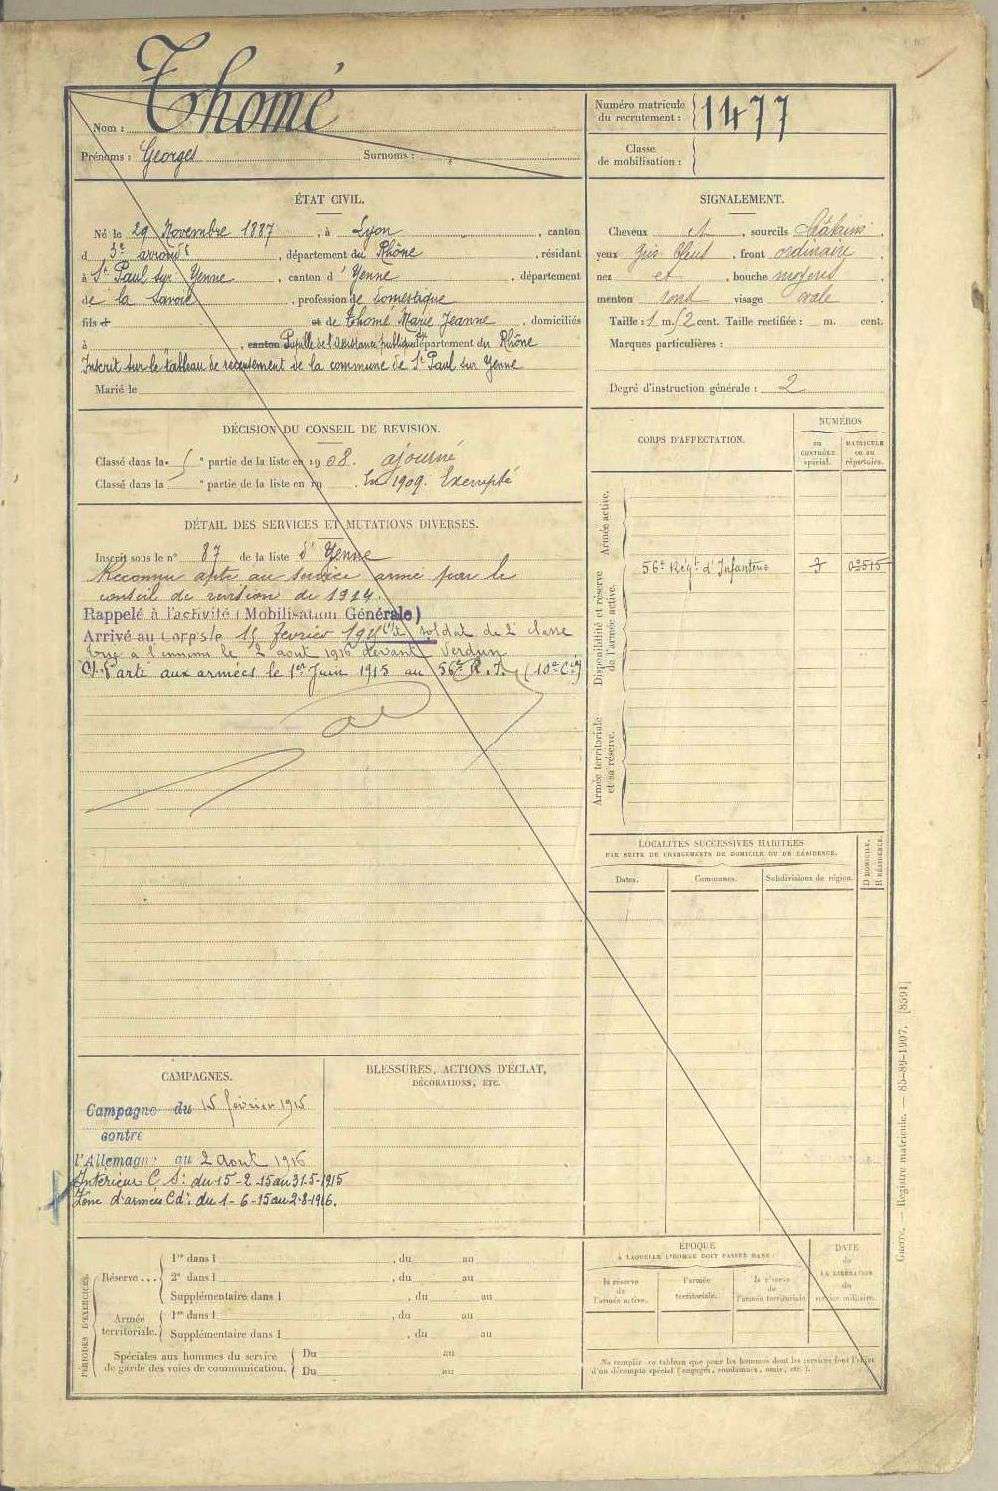 Nom : Thomé
Prénoms : Georges Surnoms :
Numéro matricule du recrutement : 1477
Classe de mobilisation :
ÉTAT CIVIL.
Né le 29 Novembre 1887, à Lyon, canton
d 3e arrondt, département du Rhône, résidant
à St Paul sur Yenne, canton d'Yenne, département
de la Savoie, profession de domestique
fils et de Thomé Marie Jeanne, domiciliés
à , canton Pupille de l'Assistance publique département du Rhône
Inscrit sur le tableau de recensement de la commune de St Paul sur Yenne
Marié le
SIGNALEMENT.
Cheveux et, sourcils châtains
yeux gris bleus, front ordinaire
nez et, bouche moyens
menton rond visage ovale
Taille : 1 m. cent. Taille rectifiée : m. cent.
Marques particulières :
Degré d'instruction générale : 2
DÉCISION DU CONSEIL DE REVISION.
Classé dans la 5 e partie de la liste en 1908. ajourné
Classé dans la e partie de la liste en 19 . En 1909. Exempté
DÉTAIL DES SERVICES ET MUTATIONS DIVERSES.
Inscrit sous le n° 87 de la liste d'Yenne
Reconnu apte au service armé par le
conseil de revision de 1914.
Rappelé à l'activité (Mobilisation Générale)
Arrivé au Corps le 15 février 1915 soldat de 2e classe
Tué à l'ennemi le 2 août 1916 devant Verdun
Parti aux armées le 1er Juin 1915 au 56e R.I. (10e Cie)
CORPS D'AFFECTATION.
NUMÉROS
au contrôle spécial.
MATRICULE ou au répertoire.
Armée active.
Disponibilité et réserve de l'armée active.
56e Régt d'Infanterie
Armée territoriale et sa réserve.
LOCALITÉS SUCCESSIVES HABITÉES
PAR SUITE DE CHANGEMENTS DE DOMICILE OU DE RÉSIDENCE.
Dates. Communes. Subdivisions de région. D DOMICILE. R RÉSIDENCE.
CAMPAGNES.
Campagne du 15 février 1915
contre
l'Allemagne au 2 Août 1916
Intérieur C S: du 15-2-15 au 31-5-1915
Zone d'armées Cd: du 1-6-15 au 2-8-1916.
BLESSURES, ACTIONS D'ÉCLAT,
DÉCORATIONS, ETC.
PÉRIODES D'EXERCICES.
Réserve...
1re dans l , du au
2e dans l , du au
Supplémentaire dans l , du au
Armée territoriale.
1re dans l , du au
Supplémentaire dans l , du au
Spéciales aux hommes du service de garde des voies de communication.
Du au
Du au
ÉPOQUE
À LAQUELLE L'HOMME DOIT PASSER DANS :
la réserve de l'armée active.
l'armée territoriale.
la réserve de l'armée territoriale.
DATE de LA LIBÉRATION du service militaire.
Ne remplir ce tableau que pour les hommes dont les services font l'objet
d'un décompte spécial (engagés, condamnés, omis, etc.).
Guerre. — Registre matricule. — 85-89-1907. [8591]